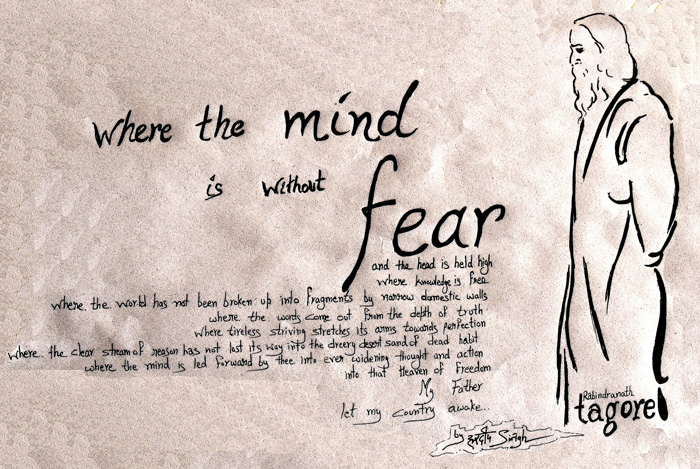 where the mind
is without
fear
and the head is held high
where knowledge is free
where the world has not been broken up into fragments by narrow domestic walls
where the words come out from the depth of truth
where tireless striving stretches its arms towards perfection
where the clear stream of reason has not lost its way into the dreery desert sand of dead habit
where the mind is led forward by thee into ever widening thought and action
into that Heaven of Freedom
My Father
let my country awake...
by Singh
Rabindranath
tagore